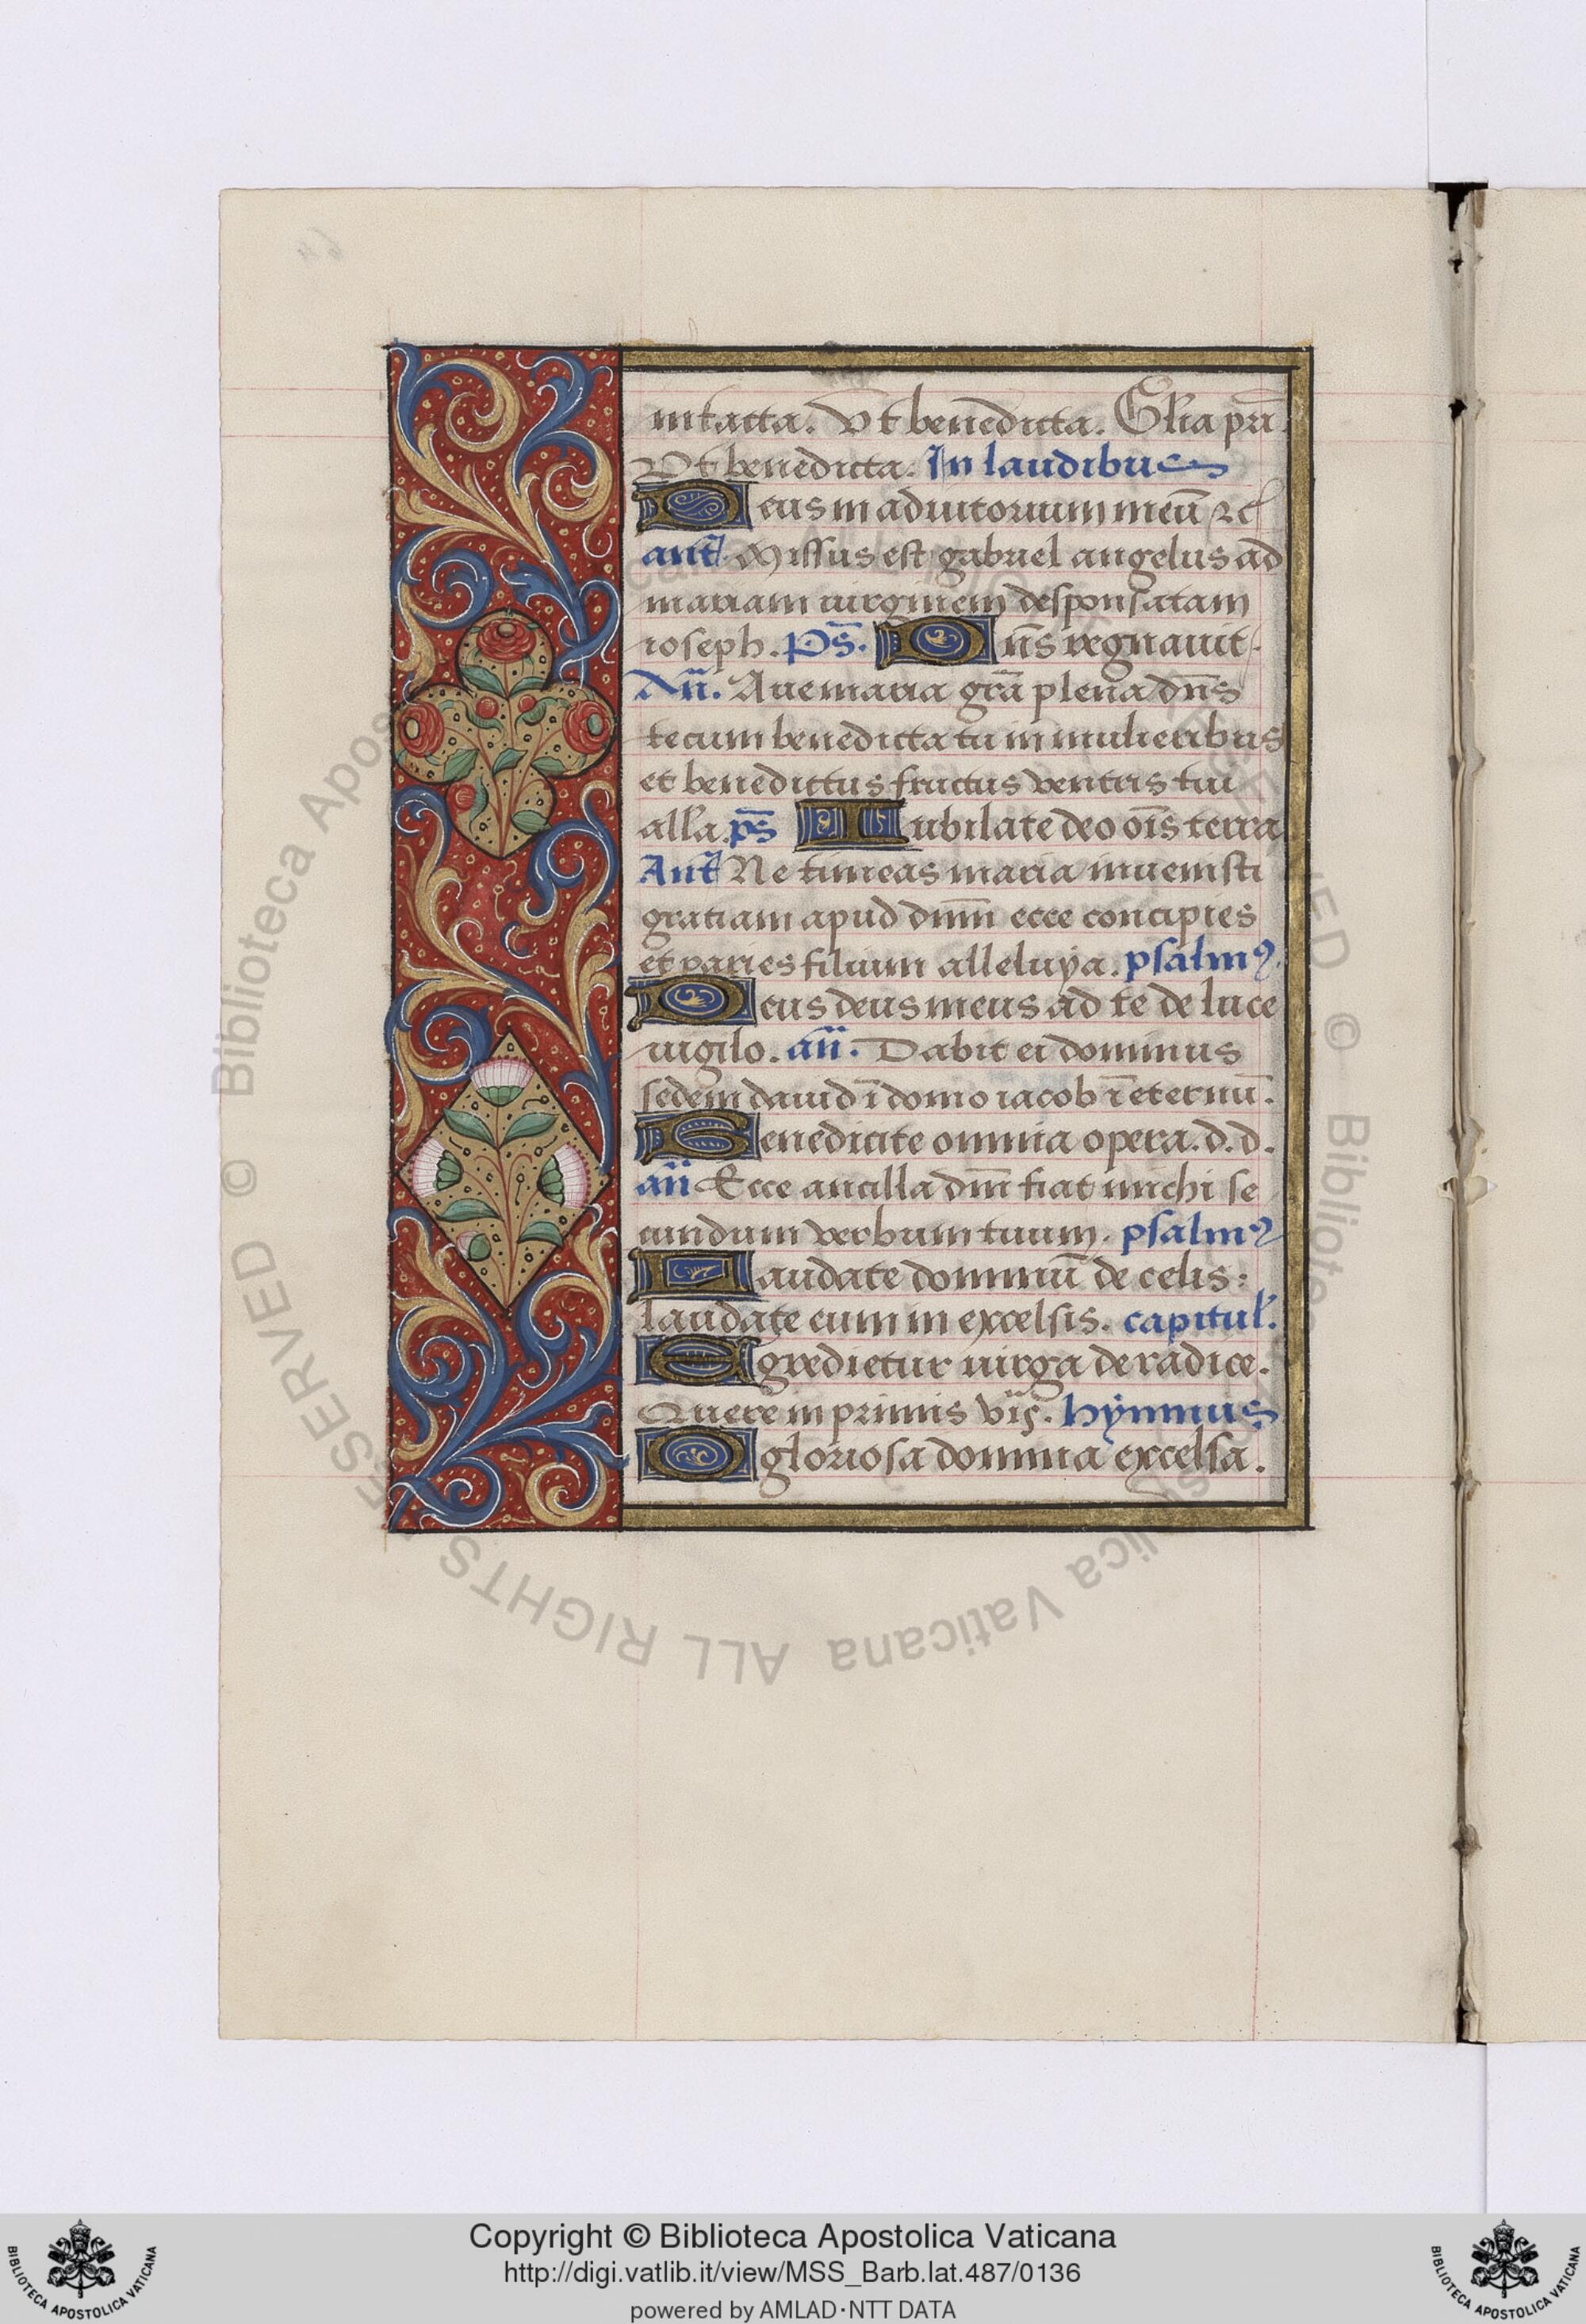 intacta. Vt benedicta. Glīa pr̄i.
Vt benedicta. In laudibus
Deus in adiutorium meū ⁊c̄
ant̄. Missus est gabriel angelus ad
mariam uirginem desponsatam
ioseph. Ps̄. Dn̄s regnauit.
An̄. Aue maria grā plena dn̄s
tecum benedicta tu in mulieribus
et benedictus fructus ventris tui
all̄a. ps̄ Iubilate deo oīs terra
Ant̄ Ne timeas maria inuenisti
gratiam apud dn̄m ecce concipies
et paries filium alleluya. psalmꝯ.
Deus deus meus ad te de luce
uigilo. an̄. Dabit ei dominus
sedem dauid ī domo iacob ī eternū.
Benedicite omnia opera. d. d.
an̄ Ecce ancilla dn̄i fiat michi se
cundum verbum tuum. psalmꝯ
Laudate dominū de celis:
laudate eum in excelsis. capitul̄.
Egredietur uirga de radice.
Quere in primis vīs. hymnus
O gloriosa domina excelsa.
© Biblioteca Apostolica Vaticana ALL RIGHTS RESERVED
Copyright © Biblioteca Apostolica Vaticana
http://digi.vatlib.it/view/MSS_Barb.lat.487/0136
powered by AMLAD·NTT DATA
BIBLIOTECA APOSTOLICA VATICANA
BIBLIOTECA APOSTOLICA VATICANA